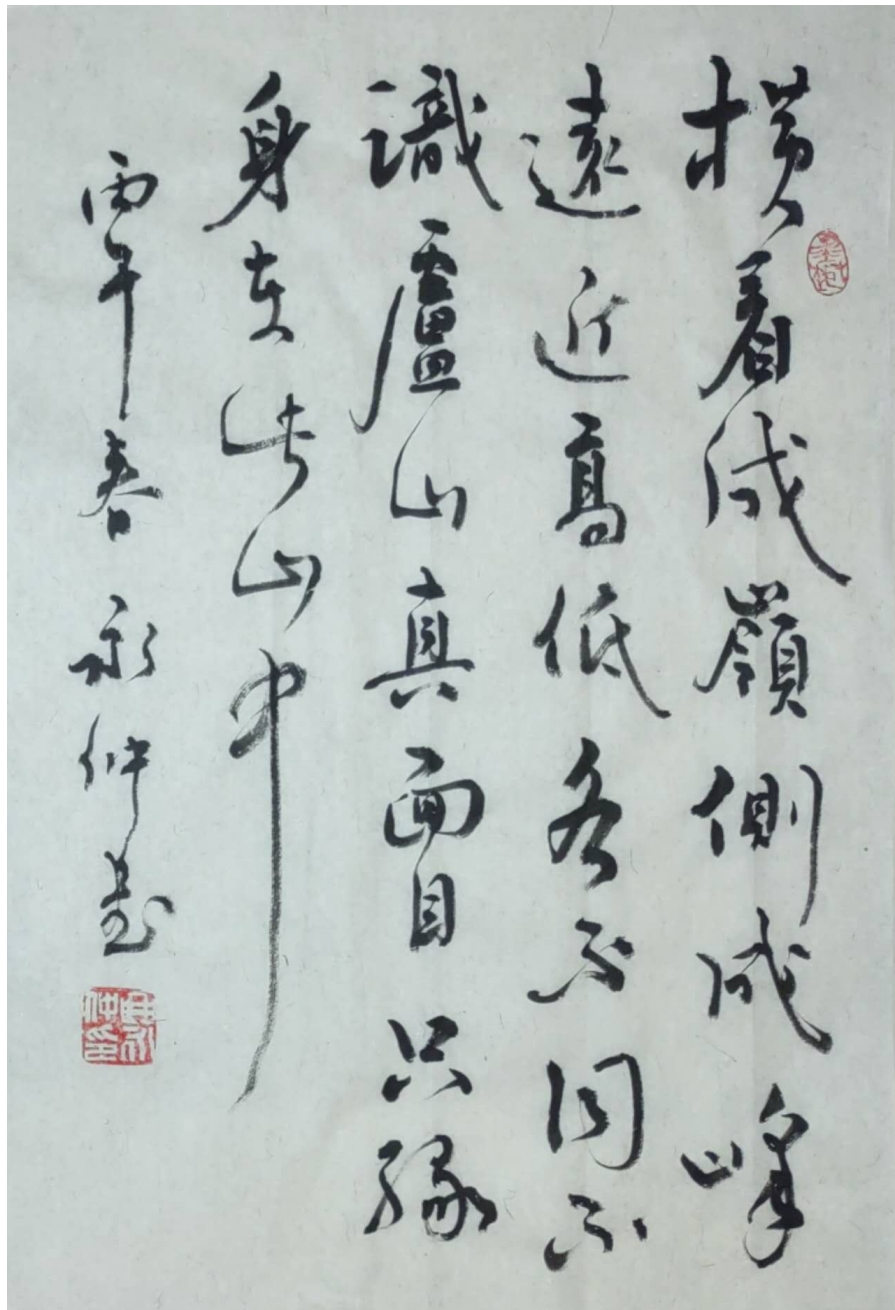 橫看成嶺側成峰
遠近高低各不同不
識廬山真面目只緣
身在此山中
丙午春永仲書